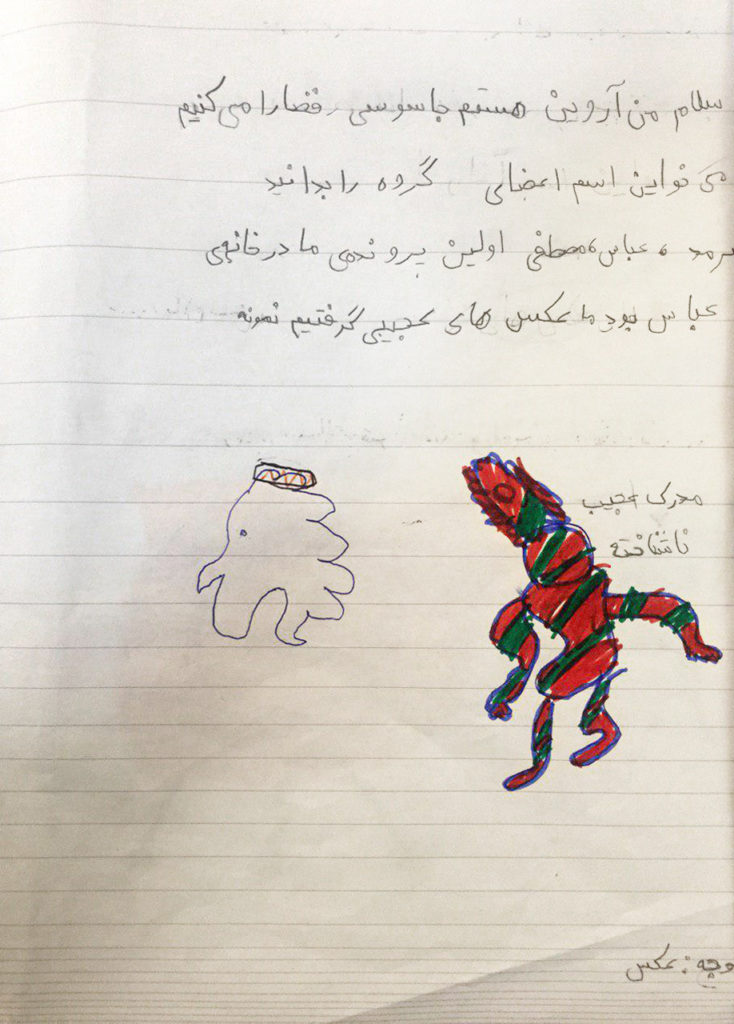 سلام من آروین هستم جاسوسی فضا را می کنیم
می تواین اسم اعضای گروه را بدانید
عباس، مصطفی اولین پرونده‌ی ما در خانه‌ی
عباس بود ما عکس های عجیبی گرفتیم نمونه
مدرک عجیب
ناشناخته
عکس